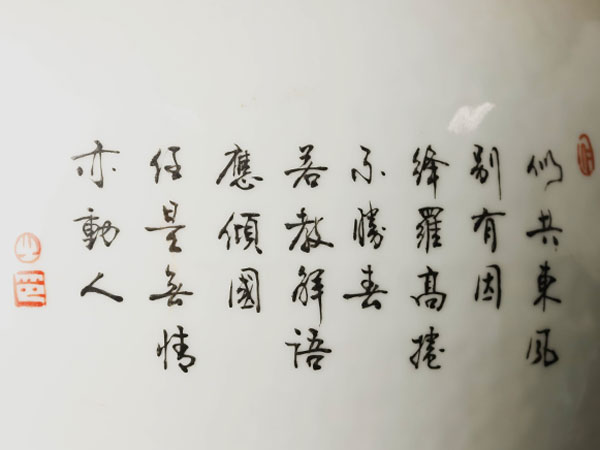 似共東風
別有因
絳羅高捲
不勝春
若教解語
應傾國
任是無情
亦動人